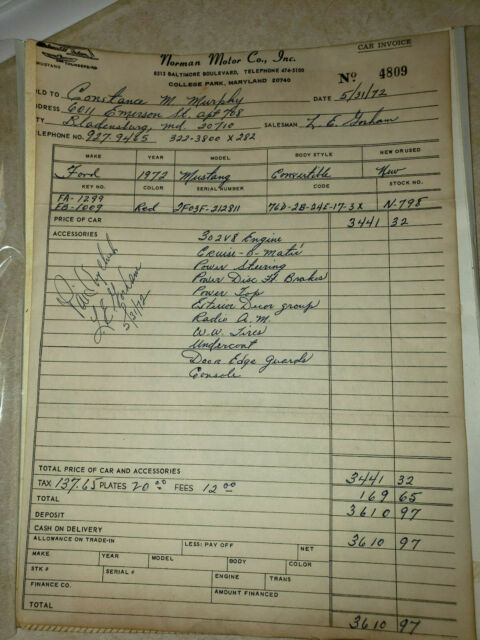 CAR INVOICE
Norman Motor Co., Inc.
8313 BALTIMORE BOULEVARD, TELEPHONE 474-5100
COLLEGE PARK, MARYLAND 20740
MUSTANG THUNDERBIRD
No. 4809
LD TO Constance M. Murphy DATE 5/31/72
DRESS 6011 Emerson St. apt 708
TY Bladensburg, Md. 20710 SALESMAN L. E. Gorham
ELEPHONE NO. 927-9465 322-3800 X 282
MAKE YEAR MODEL BODY STYLE NEW OR USED
Ford 1972 Mustang Convertible New
KEY NO. COLOR SERIAL NUMBER CODE STOCK NO.
FA-1299
FB-1009 Red 2F03F-212811 76D-2B-24E-17-3X N-798
PRICE OF CAR 3441 32
ACCESSORIES 302 V8 Engine
Cruise-O-Matic
Power Steering
Power Disc Ft Brakes
Power Top
Exterior Decor group
Radio A.M.
W.W. Tires
Undercoat
Door Edge guards
Console
L E Gorham
5/31/72
TOTAL PRICE OF CAR AND ACCESSORIES 3441 32
TAX 137.65 PLATES 20 00 FEES 12 00 169 65
TOTAL 3610 97
DEPOSIT
CASH ON DELIVERY 3610 97
ALLOWANCE ON TRADE-IN LESS: PAY OFF NET
MAKE YEAR MODEL BODY COLOR
STK # SERIAL # ENGINE TRANS
FINANCE CO. AMOUNT FINANCED
TOTAL 3610 97